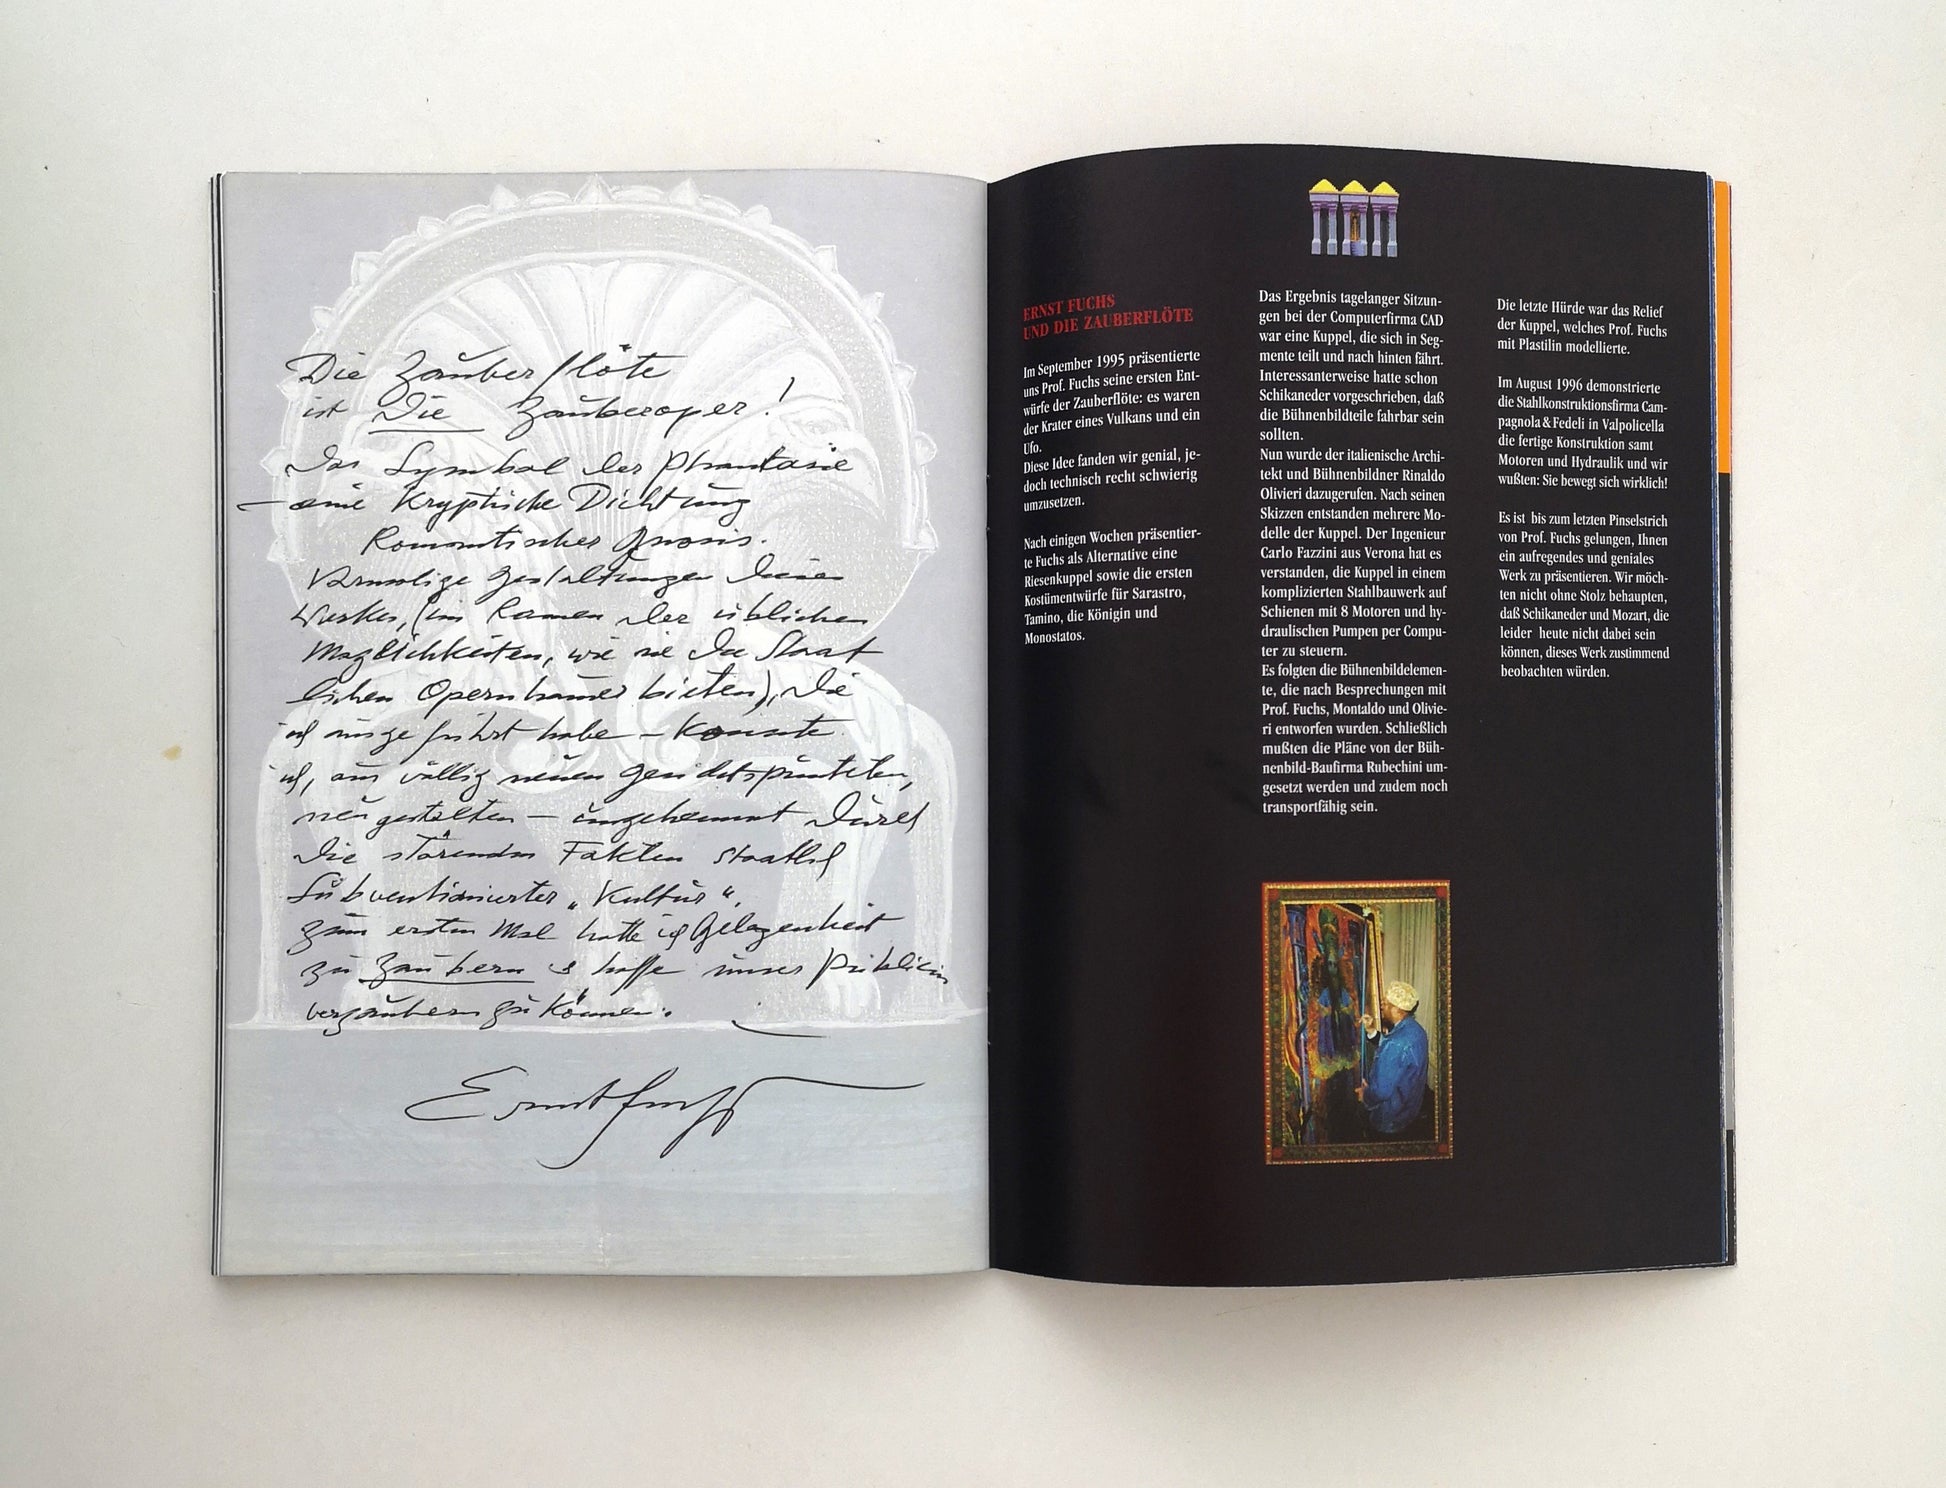 Die Zauberflöte
ist Die Zauberoper!
Das Symbol der Phantasie
– eine Kryptische Dichtung
Romantischer Gnosis.
Vormalige Gestaltungen dieses
Werkes, (im Ramen der üblichen
Möglichkeiten, wie sie die Staat
lichen Opernhäuser bieten), die
ich ausgeführt habe – konnte
ich, aus völlig neuen Gesichtspunkten,
neu gestalten – ungehemmt durch
die störenden Fakten staatlich
Subventionierter „Kultur".
Zum ersten Mal hatte ich Gelegenheit
zu Zaubern & hoffe unser Publicum
verzaubern zu können.
Ernst Fuchs
ERNST FUCHS
UND DIE ZAUBERFLÖTE
Im September 1995 präsentierte
uns Prof. Fuchs seine ersten Ent-
würfe der Zauberflöte: es waren
der Krater eines Vulkans und ein
Ufo.
Diese Idee fanden wir genial, je-
doch technisch recht schwierig
umzusetzen.
Nach einigen Wochen präsentier-
te Fuchs als Alternative eine
Riesenkuppel sowie die ersten
Kostümentwürfe für Sarastro,
Tamino, die Königin und
Monostatos.
Das Ergebnis tagelanger Sitzun-
gen bei der Computerfirma CAD
war eine Kuppel, die sich in Seg-
mente teilt und nach hinten fährt.
Interessanterweise hatte schon
Schikaneder vorgeschrieben, daß
die Bühnenbildteile fahrbar sein
sollten.
Nun wurde der italienische Archi-
tekt und Bühnenbildner Rinaldo
Olivieri dazugerufen. Nach seinen
Skizzen entstanden mehrere Mo-
delle der Kuppel. Der Ingenieur
Carlo Fazzini aus Verona hat es
verstanden, die Kuppel in einem
komplizierten Stahlbauwerk auf
Schienen mit 8 Motoren und hy-
draulischen Pumpen per Compu-
ter zu steuern.
Es folgten die Bühnenbildelemen-
te, die nach Besprechungen mit
Prof. Fuchs, Montaldo und Olivie-
ri entworfen wurden. Schließlich
mußten die Pläne von der Büh-
nenbild-Baufirma Rubechini um-
gesetzt werden und zudem noch
transportfähig sein.
Die letzte Hürde war das Relief
der Kuppel, welches Prof. Fuchs
mit Plastilin modellierte.
Im August 1996 demonstrierte
die Stahlkonstruktionsfirma Cam-
pagnola & Fedeli in Valpolicella
die fertige Konstruktion samt
Motoren und Hydraulik und wir
wußten: Sie bewegt sich wirklich!
Es ist bis zum letzten Pinselstrich
von Prof. Fuchs gelungen, Ihnen
ein aufregendes und geniales
Werk zu präsentieren. Wir möch-
ten nicht ohne Stolz behaupten,
daß Schikaneder und Mozart, die
leider heute nicht dabei sein
können, dieses Werk zustimmend
beobachten würden.